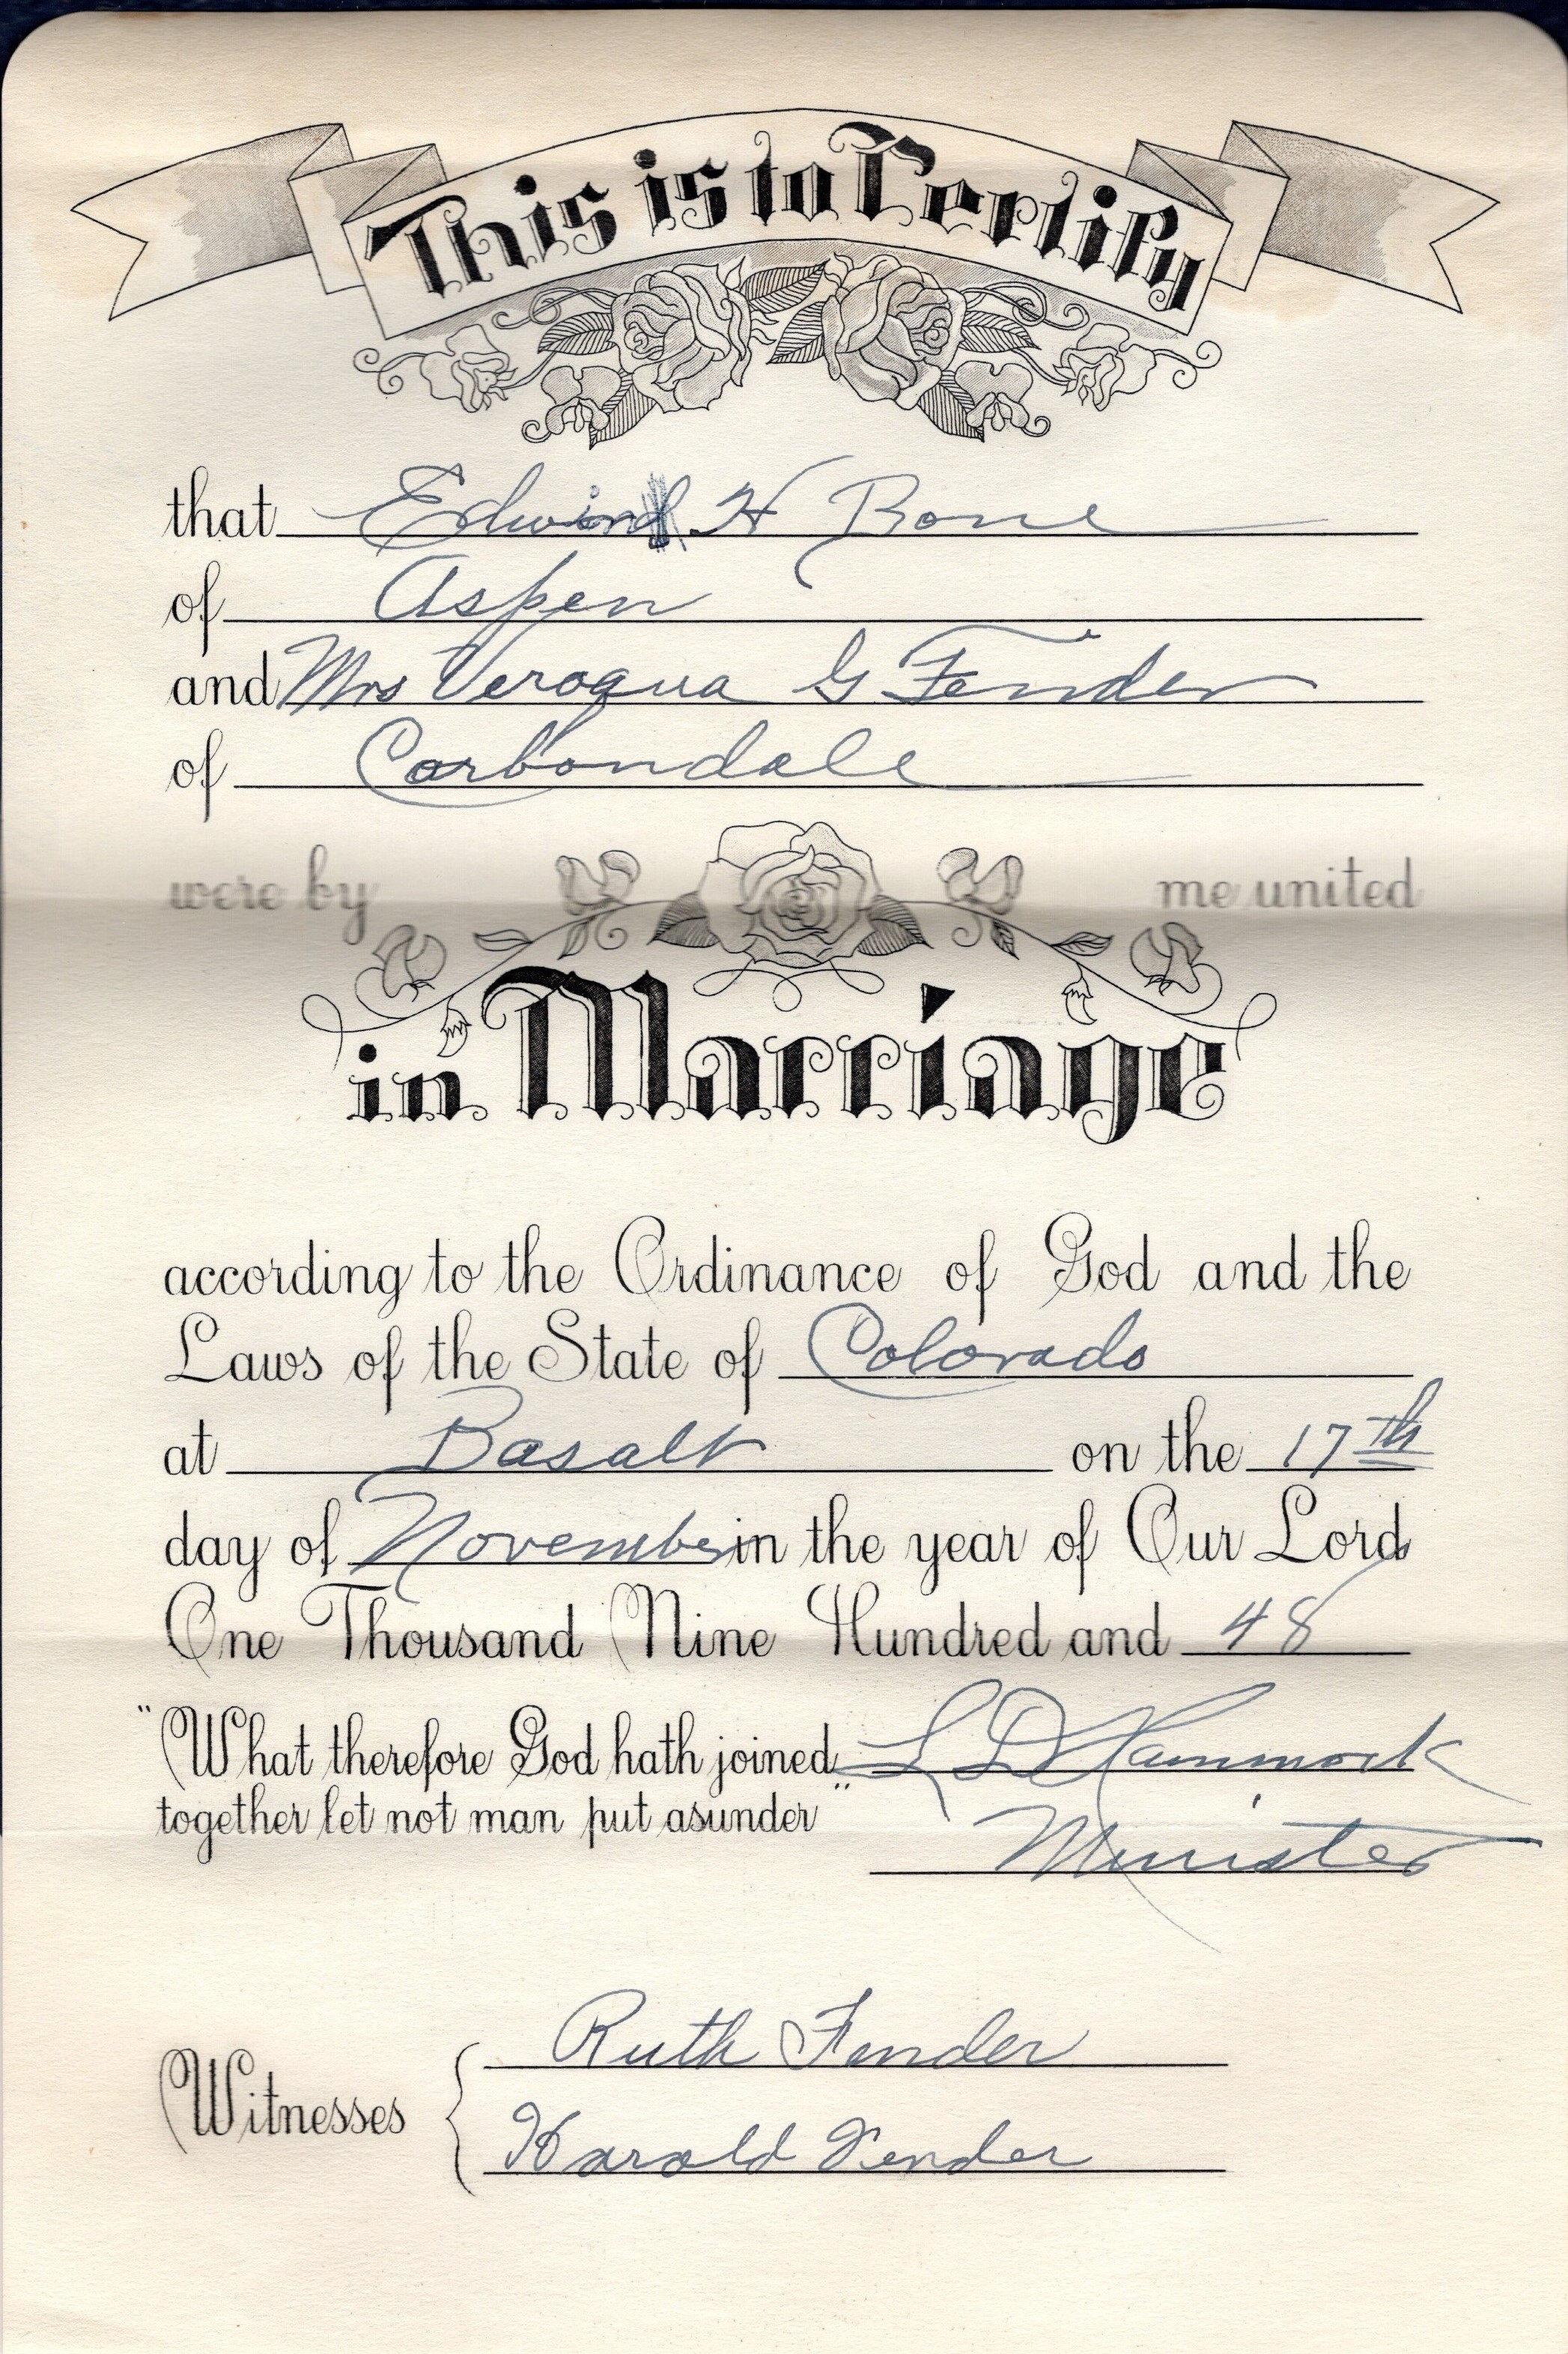 This is to Certify
that Edwin H Bone
of Aspen
and Mrs Veroqua G Fender
of Carbondale
were by me united
in Marriage
according to the Ordinance of God and the
Laws of the State of Colorado
at Basalt on the 17th
day of November in the year of Our Lord
One Thousand Nine Hundred and 48
"What therefore God hath joined L D Hammock
together let not man put asunder"
Minister
Ruth Fender
Witnesses {
Harold Fender